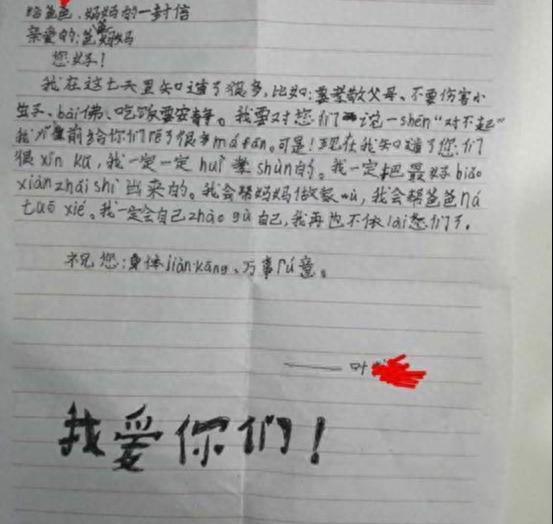 给爸爸、妈妈的一封信
亲爱的:爸爸妈妈
您好!
我在这七天里知道了很多,比如:要孝敬父母、不要伤害小
生子、bài佛、吃饭要安静。我要对您们说一shēn“对不起”
我以前给你们陌了很多má fán。可是!现在我知道了您们
很xīn kǔ,我一定一定huì孝shùn的。我一定把最好biǎo
xiàn zhǎi shì出来的。我会帮妈妈做家wù,我会帮爸爸ná
tuō xié。我一定会自己zhào gù自己,我再也不依lài您们了。
祝您:身体jiàn kāng、万事rú意。
——叶
我爱你们!